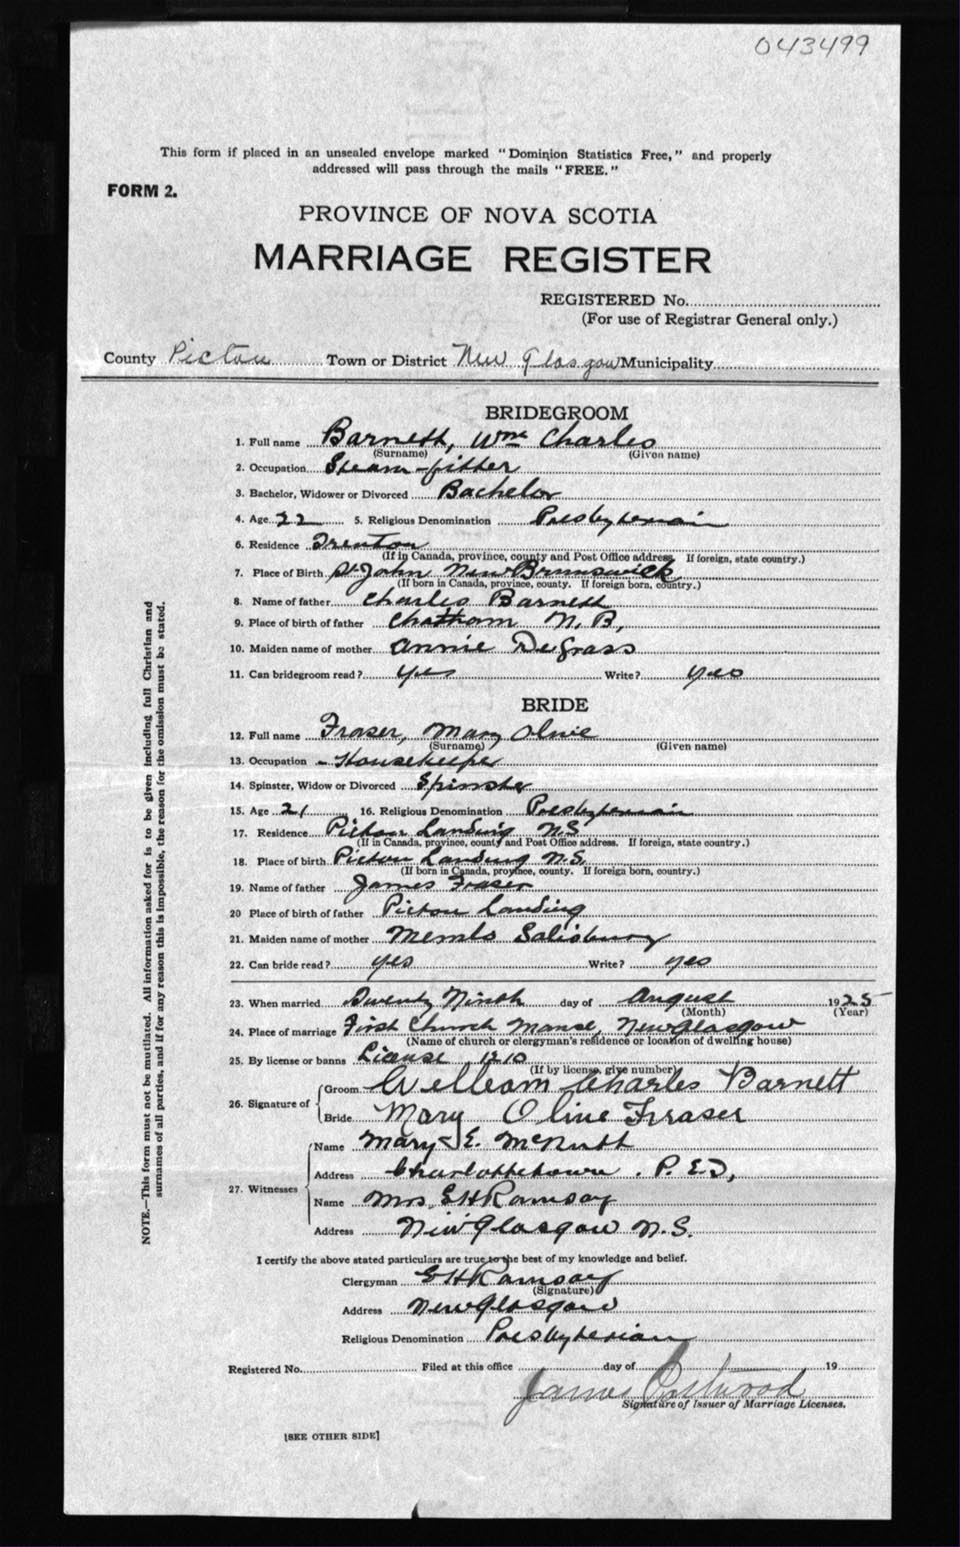 043499
This form if placed in an unsealed envelope marked "Dominion Statistics Free," and properly
addressed will pass through the mails "FREE."
FORM 2.
PROVINCE OF NOVA SCOTIA
MARRIAGE REGISTER
REGISTERED No.
(For use of Registrar General only.)
County Pictou Town or District New Glasgow Municipality
BRIDEGROOM
1. Full name Barnett, Wm Charles
(Surname) (Given name)
2. Occupation Steam-fitter
3. Bachelor, Widower or Divorced Bachelor
4. Age 22 5. Religious Denomination Presbyterain
6. Residence Trenton
(If in Canada, province, county and Post Office address. If foreign, state country.)
7. Place of Birth St John New Brunswick
(If born in Canada, province, county. If foreign born, country.)
8. Name of father Charles Barnett
9. Place of birth of father Chatham N.B.
10. Maiden name of mother Annie DeGrass
11. Can bridegroom read? yes Write? yes
BRIDE
12. Full name Fraser, Mary Olive
(Surname) (Given name)
13. Occupation - Housekeeper
14. Spinster, Widow or Divorced Spinster
15. Age 21 16. Religious Denomination Presbyterain
17. Residence Pictou Landing N.S.
(If in Canada, province, county and Post Office address. If foreign, state country.)
18. Place of birth Pictou Landing N.S.
(If born in Canada, province, county. If foreign born, country.)
19. Name of father James Fraser
20 Place of birth of father Pictou Landing
21. Maiden name of mother Salisbury
22. Can bride read? yes Write? yes
23. When married Twenty Ninth day of August 1925
(Month) (Year)
24. Place of marriage First Church Manse, New Glasgow
(Name of church or clergyman's residence or location of dwelling house)
25. By license or banns License 1210
(If by license, give number)
26. Signature of
Groom William Charles Barnett
Bride Mary Olive Fraser
27. Witnesses
Name Mary E. McNutt
Address Charlottetown. P.E.I,
Name Mrs. E H Ramsay
Address New Glasgow N.S.
I certify the above stated particulars are true to the best of my knowledge and belief.
Clergyman E H Ramsay
(Signature)
Address New Glasgow
Religious Denomination Presbyterian
Registered No. Filed at this office day of 19
James
Signature of Issuer of Marriage Licenses.
[SEE OTHER SIDE]
NOTE.—This form must not be mutilated. All information asked for is to be given including full Christian and
surnames of all parties, and if for any reason this is impossible, the reason for the omission must be stated.